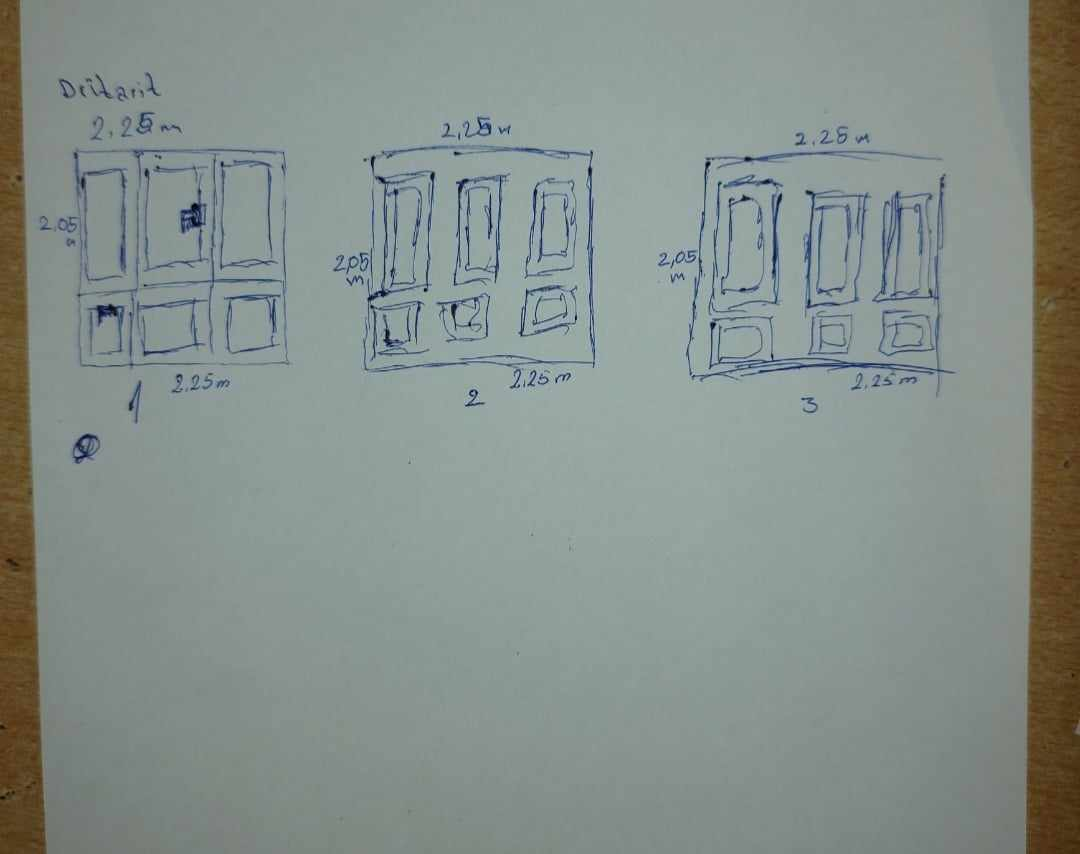 Dritarit
2.25 m
2,25 m
2.25 m
2,05
m
2,05
m
2,05
m
2.25 m
2,25 m
2,25 m
1
2
3